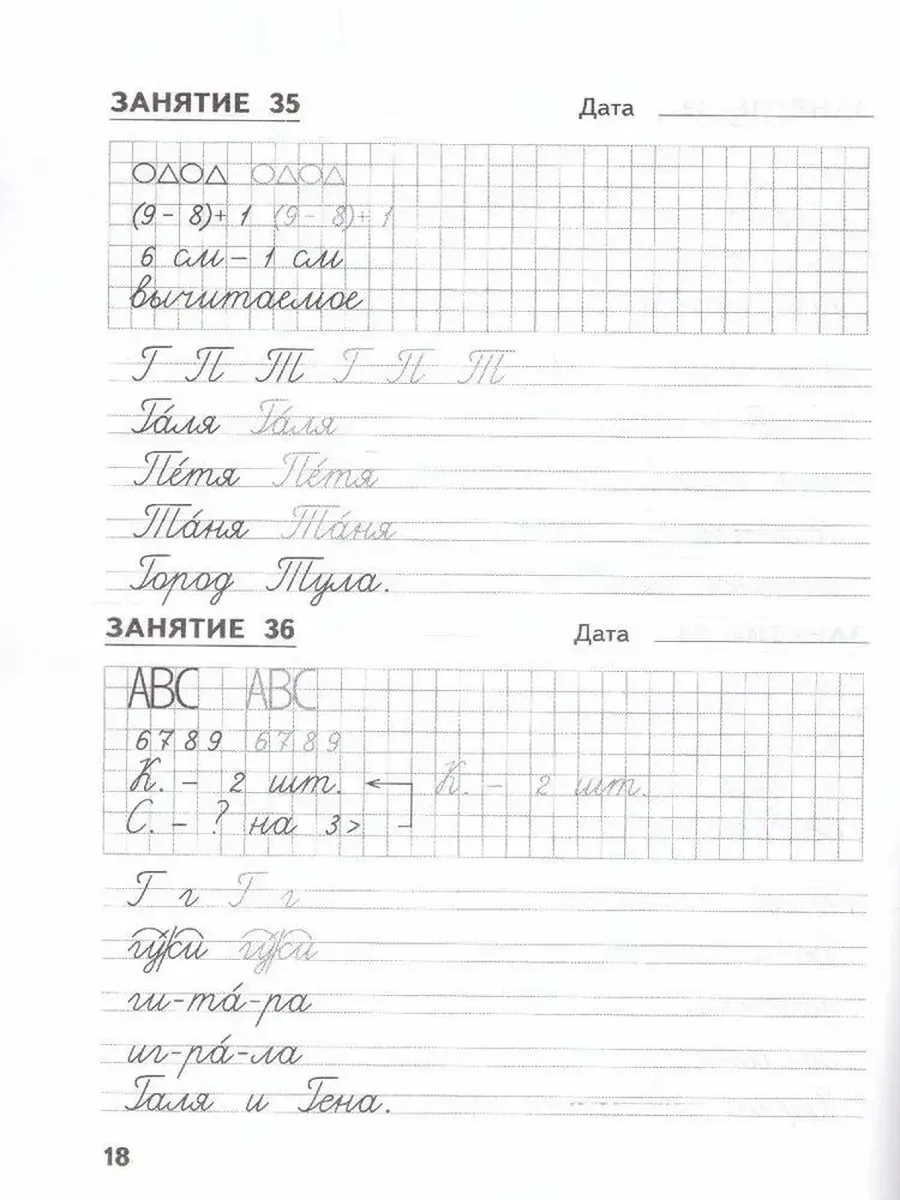 ЗАНЯТИЕ 35 Дата
(9 - 8)+ 1 (9 - 8)+ 1
6 см - 1 см
вычитаемое
Г П Т Г П Т
Га́ля Га́ля
Пе́тя Пе́тя
Та́ня Та́ня
Город Тула.
ЗАНЯТИЕ 36 Дата
АВС АВС
6 7 8 9 6 7 8 9
К. - 2 шт. К. - 2 шт.
С. - ? на 3 >
Г г Г г
гу́си гу́си
ги-та́-ра
иг-ра́-ла
Галя и Гена.
18